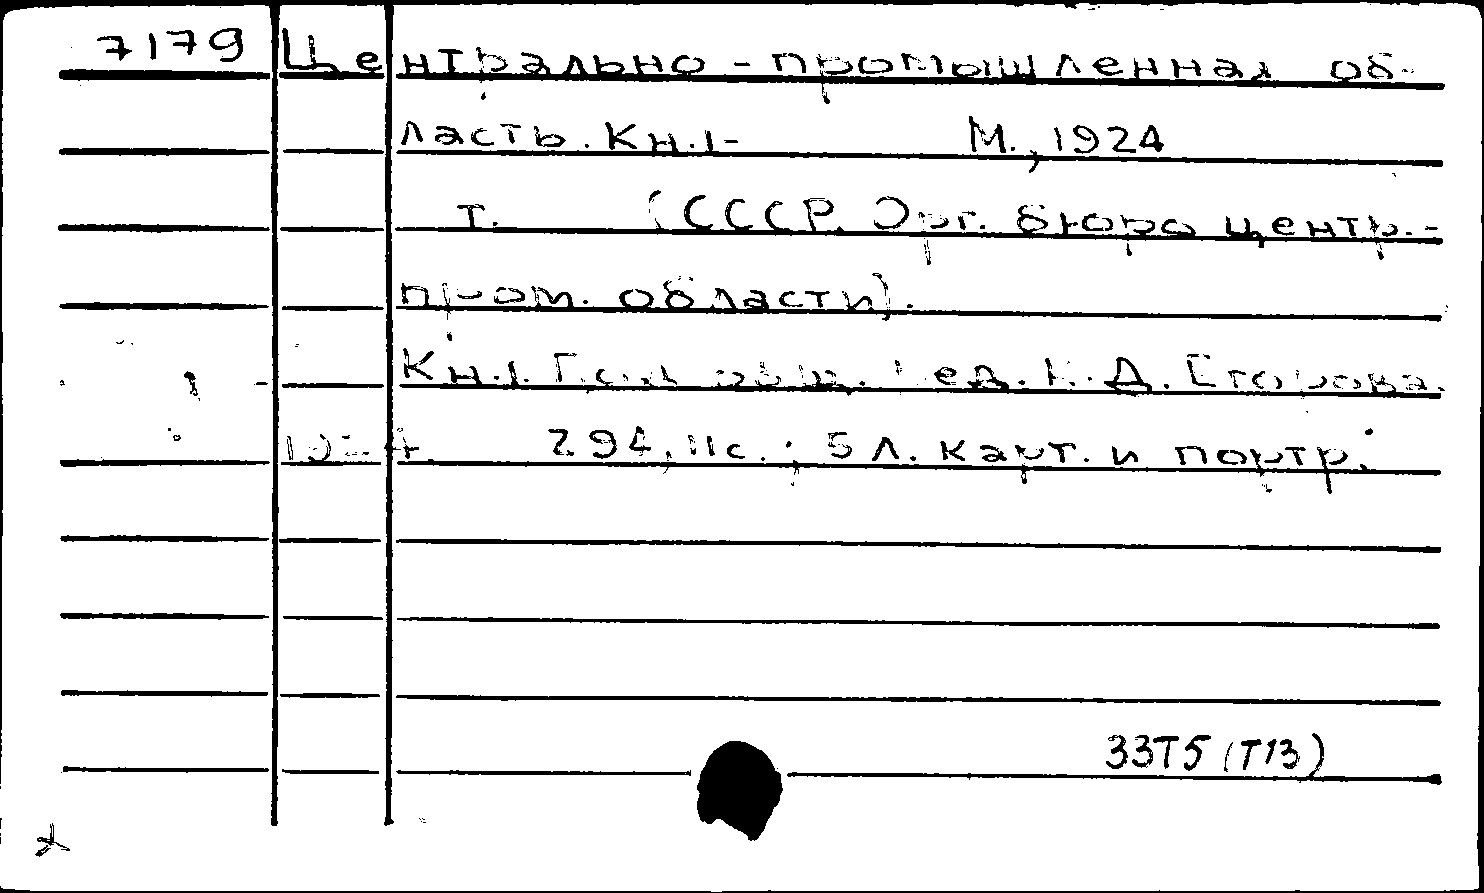 7179 Центрально-промышленная об-
ласть. Кн.1- М., 1924
т. (СССР. Орг. бюро центр.-
пром. области).
Кн.1. Под общ. ред. К. Д. Егорова.
1924. 294, IIс.; 5 л. карт. и портр.
33Т5 (Т13)